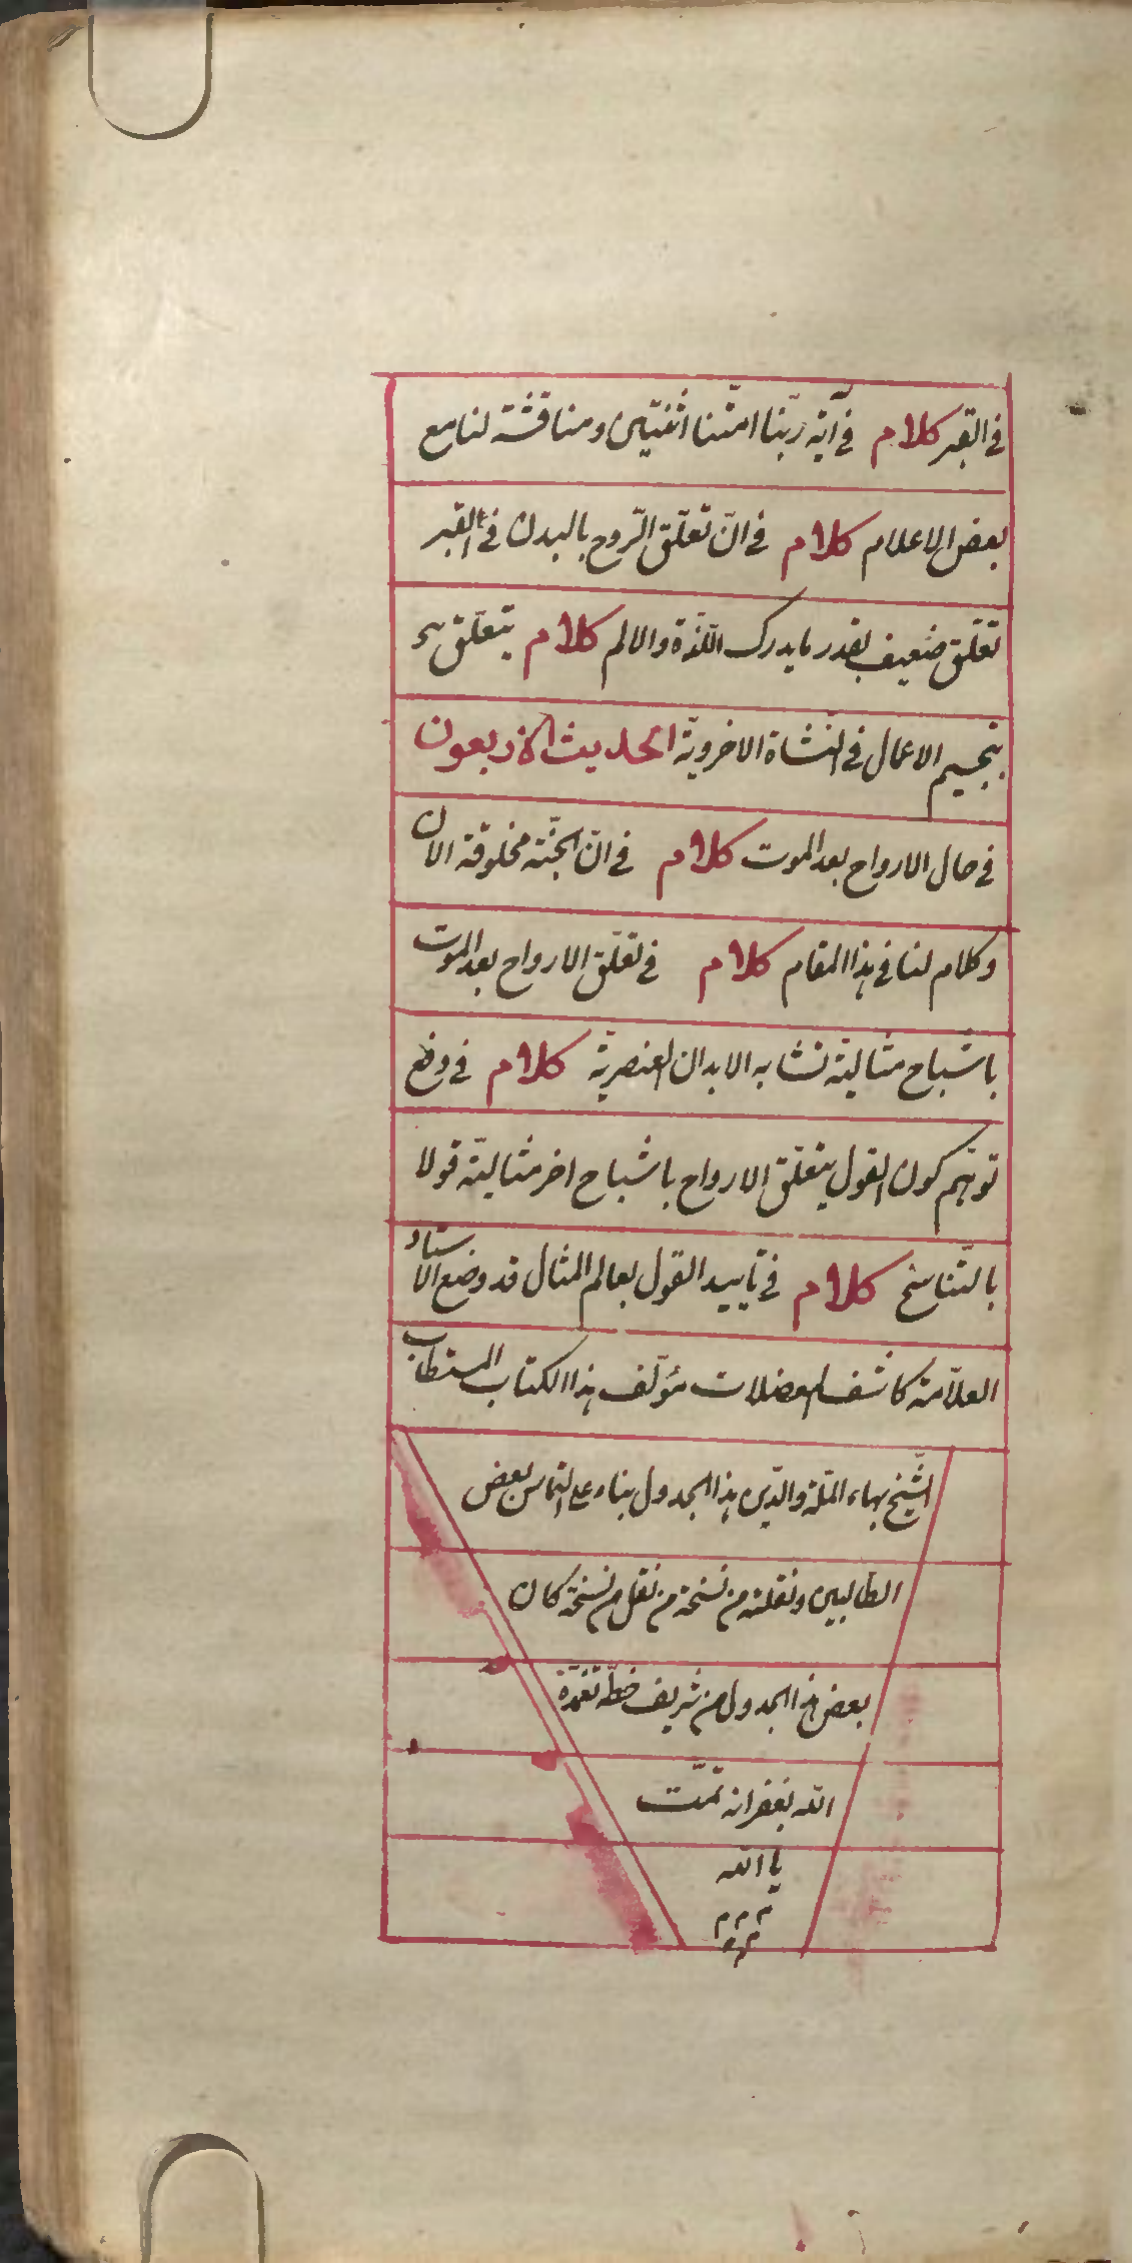 في القبر كلام في آية ربّنا امتّنا اثنتين ومناقشة لنا مع
بعض الاعلام كلام في انّ تعلّق الرّوح بالبدن في القبر
تعلّق ضعيف بقدر ما يدرك اللّذة والالم كلام يتعلّق
بتجسيم الاعمال في النّشاة الاخرويّة الحديث الاربعون
في حال الارواح بعد الموت كلام في انّ الجنّة مخلوقة الان
وكلام لنا في هذا المقام كلام في تعلّق الارواح بعد الموت
باشباح مثاليّة تشابه الابدان العنصريّة كلام في دفع
توهّم كون القول بتعلّق الارواح باشباح اخر مثاليّة قولا
بالتّناسخ كلام في تأييد القول بعالم المثال قد وضع الاستاد
العلّامة كاشف المعضلات مؤلّف هذا الكتاب المستطاب
الشّيخ بهاء الملّة والدّين هذا الجدول بناء على التماس بعض
الطالبين ونقلته من نسخة من نقل من نسخة كان
بعض هذا الجدول من شريف خطّه تغمّده
الله بغفرانه تمّت
يا الله
م م م
م م